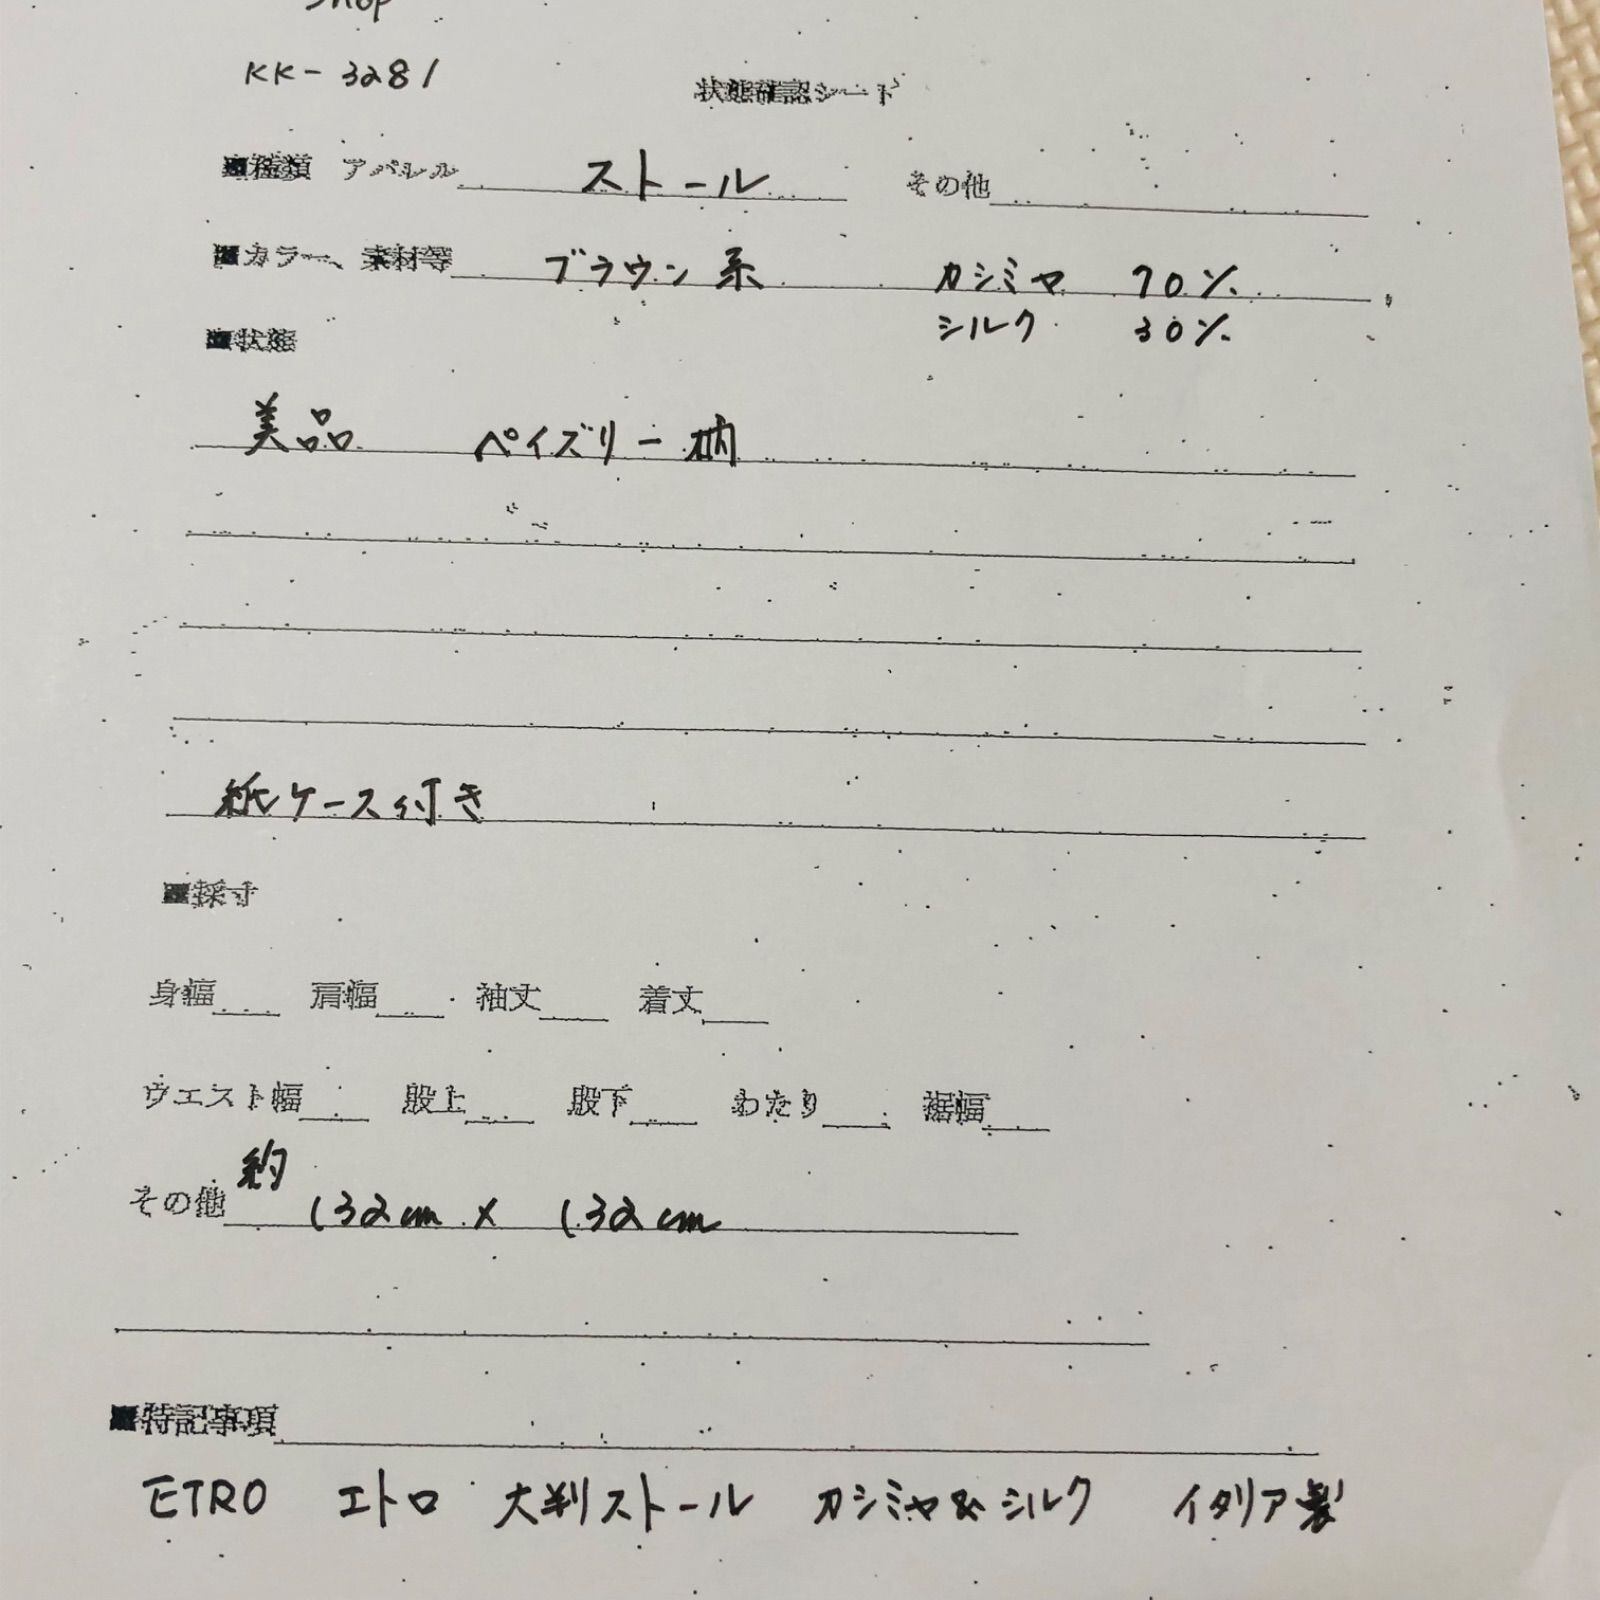 shop
KK-3281
状態確認シート
■種類 アパレル ストール その他
■カラー、素材等 ブラウン系 カシミヤ 70%
シルク 30%
■状態
美品 ペイズリー柄
紙ケース付き
■採寸
身幅 肩幅 袖丈 着丈
ウエスト幅 股上 股下 わたり 裾幅
その他 約 132cm × 132cm
■特記事項
ETRO エトロ 大判ストール カシミヤ&シルク イタリア製